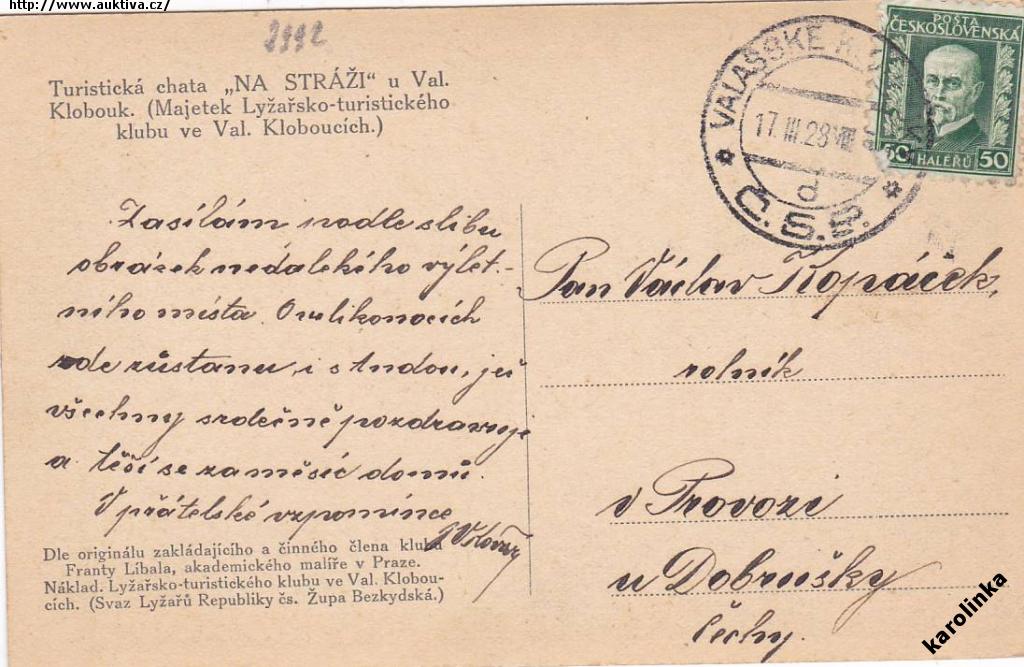 http://www.auktiva.cz/
2992
Turistická chata „NA STRÁŽI" u Val.
Klobouk. (Majetek Lyžařsko-turistického
klubu ve Val. Kloboucích.)
VALAŠSKÉ
17.III.28
d
Č.S.P.
POŠTA
ČESKOSLOVENSKÁ
50 HALÉŘŮ 50
Zasílám podle slibu
obrázek nedalekého výlet-
ního místa. O velikonocích
zde zůstanu, i s Andou, jež
všechny srdečně pozdravuje
a těší se za měsíc domů.
V přátelské vzpomínce
Dle originálu zakládajícího a činného člena klubu
Franty Líbala, akademického malíře v Praze.
Náklad. Lyžařsko-turistického klubu ve Val. Klobou-
cích. (Svaz Lyžařů Republiky čs. Župa Bezkydská.)
Pan Václav Kopáček,
rolník
v Provozi
u Dobrušky
Čechy.
karolinka